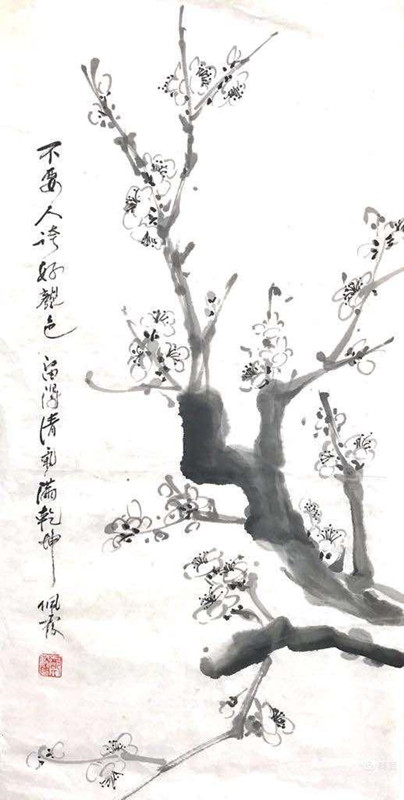 不要人誇好顏色 留得清氣滿乾坤 佩